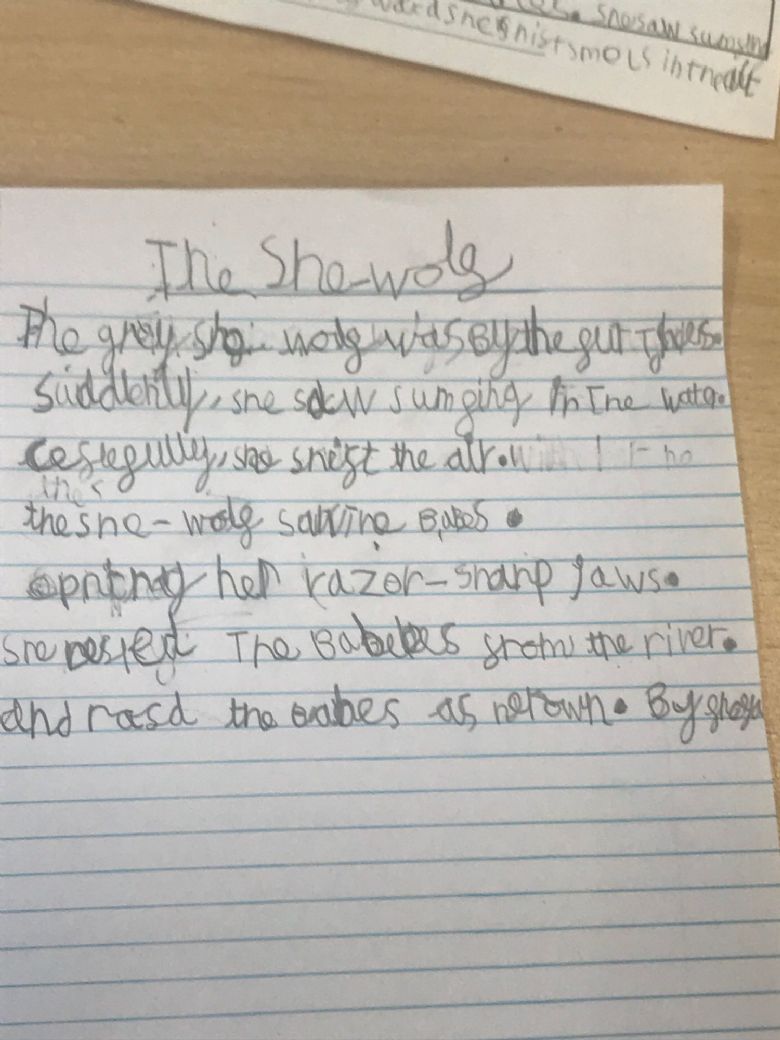 snesaw sumsin
wards ne snist smols in the alt
The She-wolg
The gray she wolg was By the gur
suddlenly, sne saw sumging in the watg.
cesegully, she snigt the air.
the sne-wolg saw Babes.
her razor-snarp jaws.
sne The Babebes grom the river.
and rasd the babes as nerown. By